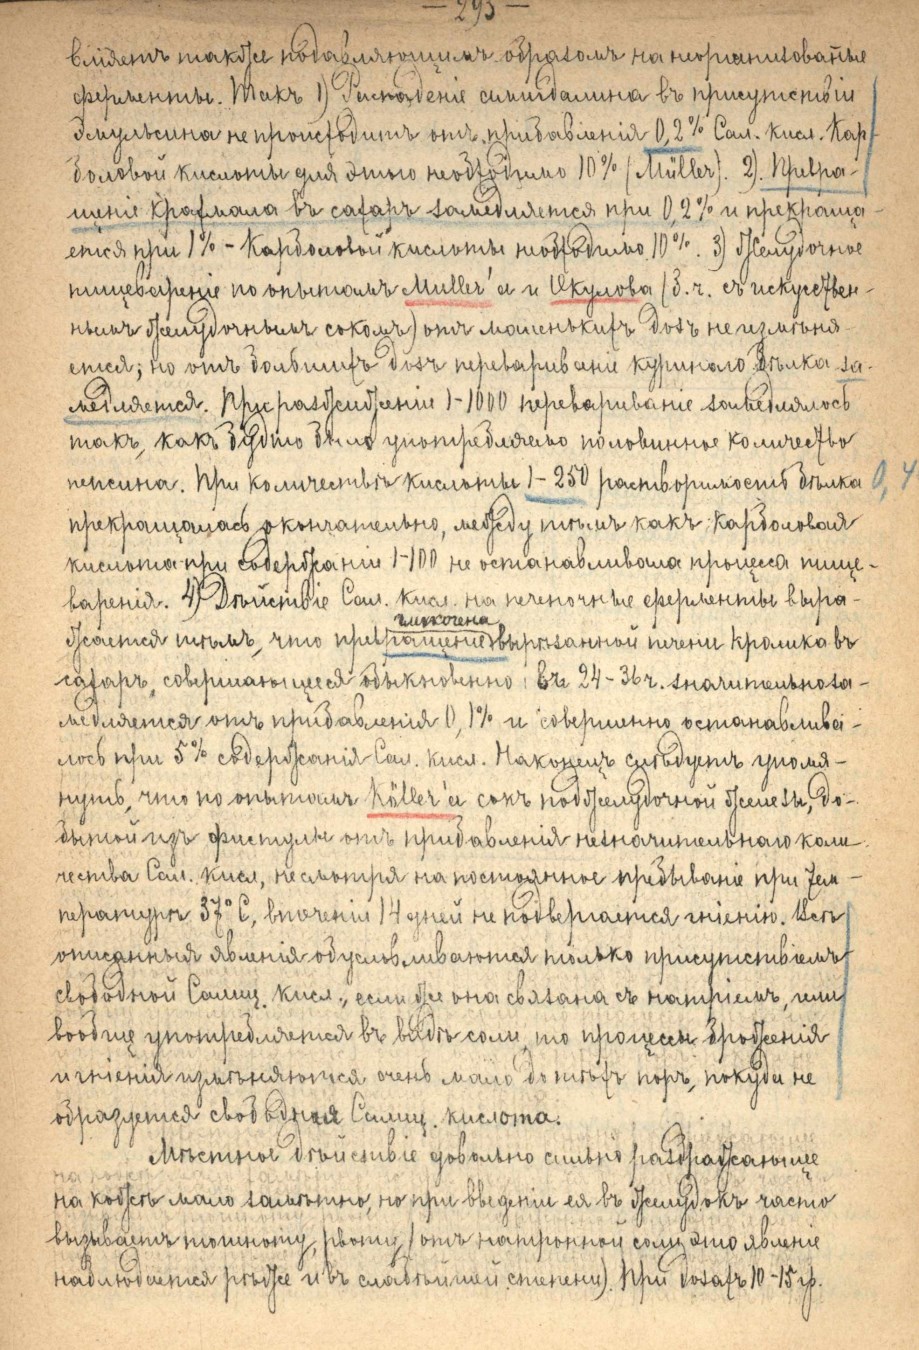 — 293 —
вліяетъ также подавляющимъ образомъ на неорганизованые
ферменты. Такъ 1) Распаденіе амигдалина въ присутствіи
эмульсина не происходитъ отъ прибавленія 0,2% Сал. кисл. Кар-
боловой кислоты для этого необходимо 10% (Müller). 2). Превра-
щеніе крахмала въ сахаръ замедляется при 0,2% и прекраща-
ется при 1% - Карболовой кислоты необходимо 10%. 3) Желудочное
пищевареніе по опытамъ Muller'a и Окулова (З. ч. съ искуствен-
нымъ желудочнымъ сокомъ) отъ маленькихъ дозъ не измѣня-
ется; но отъ большихъ дозъ перевариваніе куринаго бѣлка за-
медляется. При разжиженіи 1-1000 перевариваніе замедлялось
такъ, какъ будто было употребляемо половинное количество
пепсина. При количествѣ кислоты 1-250 растворимость бѣлка 0,4
прекращалась окончательно, между тѣмъ какъ Карболовая
кислота при содержаніи 1-100 не останавливала процесса пище-
варенія. 4) Дѣйствіе Сал. кисл. на печеночные ферменты выра-
гликогена
жается тѣмъ, что превращеніе вырѣзанной печени кролика въ
сахаръ, совершающееся обыкновенно въ 24-36 ч. значительно за-
медляется отъ прибавленія 0,1% и совершенно останавлива-
лось при 5% содержанія Сал. кисл. Наконецъ слѣдуетъ упомя-
нуть, что по опытамъ Köller'a сокъ поджелудочной железы, до-
бытой изъ фистулы отъ прибавленія незначительнаго коли-
чества Сал. кисл, несмотря на постоянное пребываніе при тем-
пературѣ 37°C, втеченіи 14 дней не подвергается гніенію. Всѣ
описанныя явленія обусловливаются только присутствіемъ
свободной Салиц. кисл., если же она связана съ натріемъ, или
вообще употребляется въ видѣ соли, то процессы броженія
и гніенія измѣняются очень мало до тѣхъ поръ, покуда не
образуется свободная Салиц. кислота.
Мѣстное дѣйствіе довольно сильно раздражающее
на кожѣ мало замѣтно, но при введеніи ея въ желудокъ часто
вызываетъ тошноту, рвоту, (отъ натронной соли это явленіе
наблюдается рѣже и въ слабѣйшей степени). При дозахъ 10-15 гр.